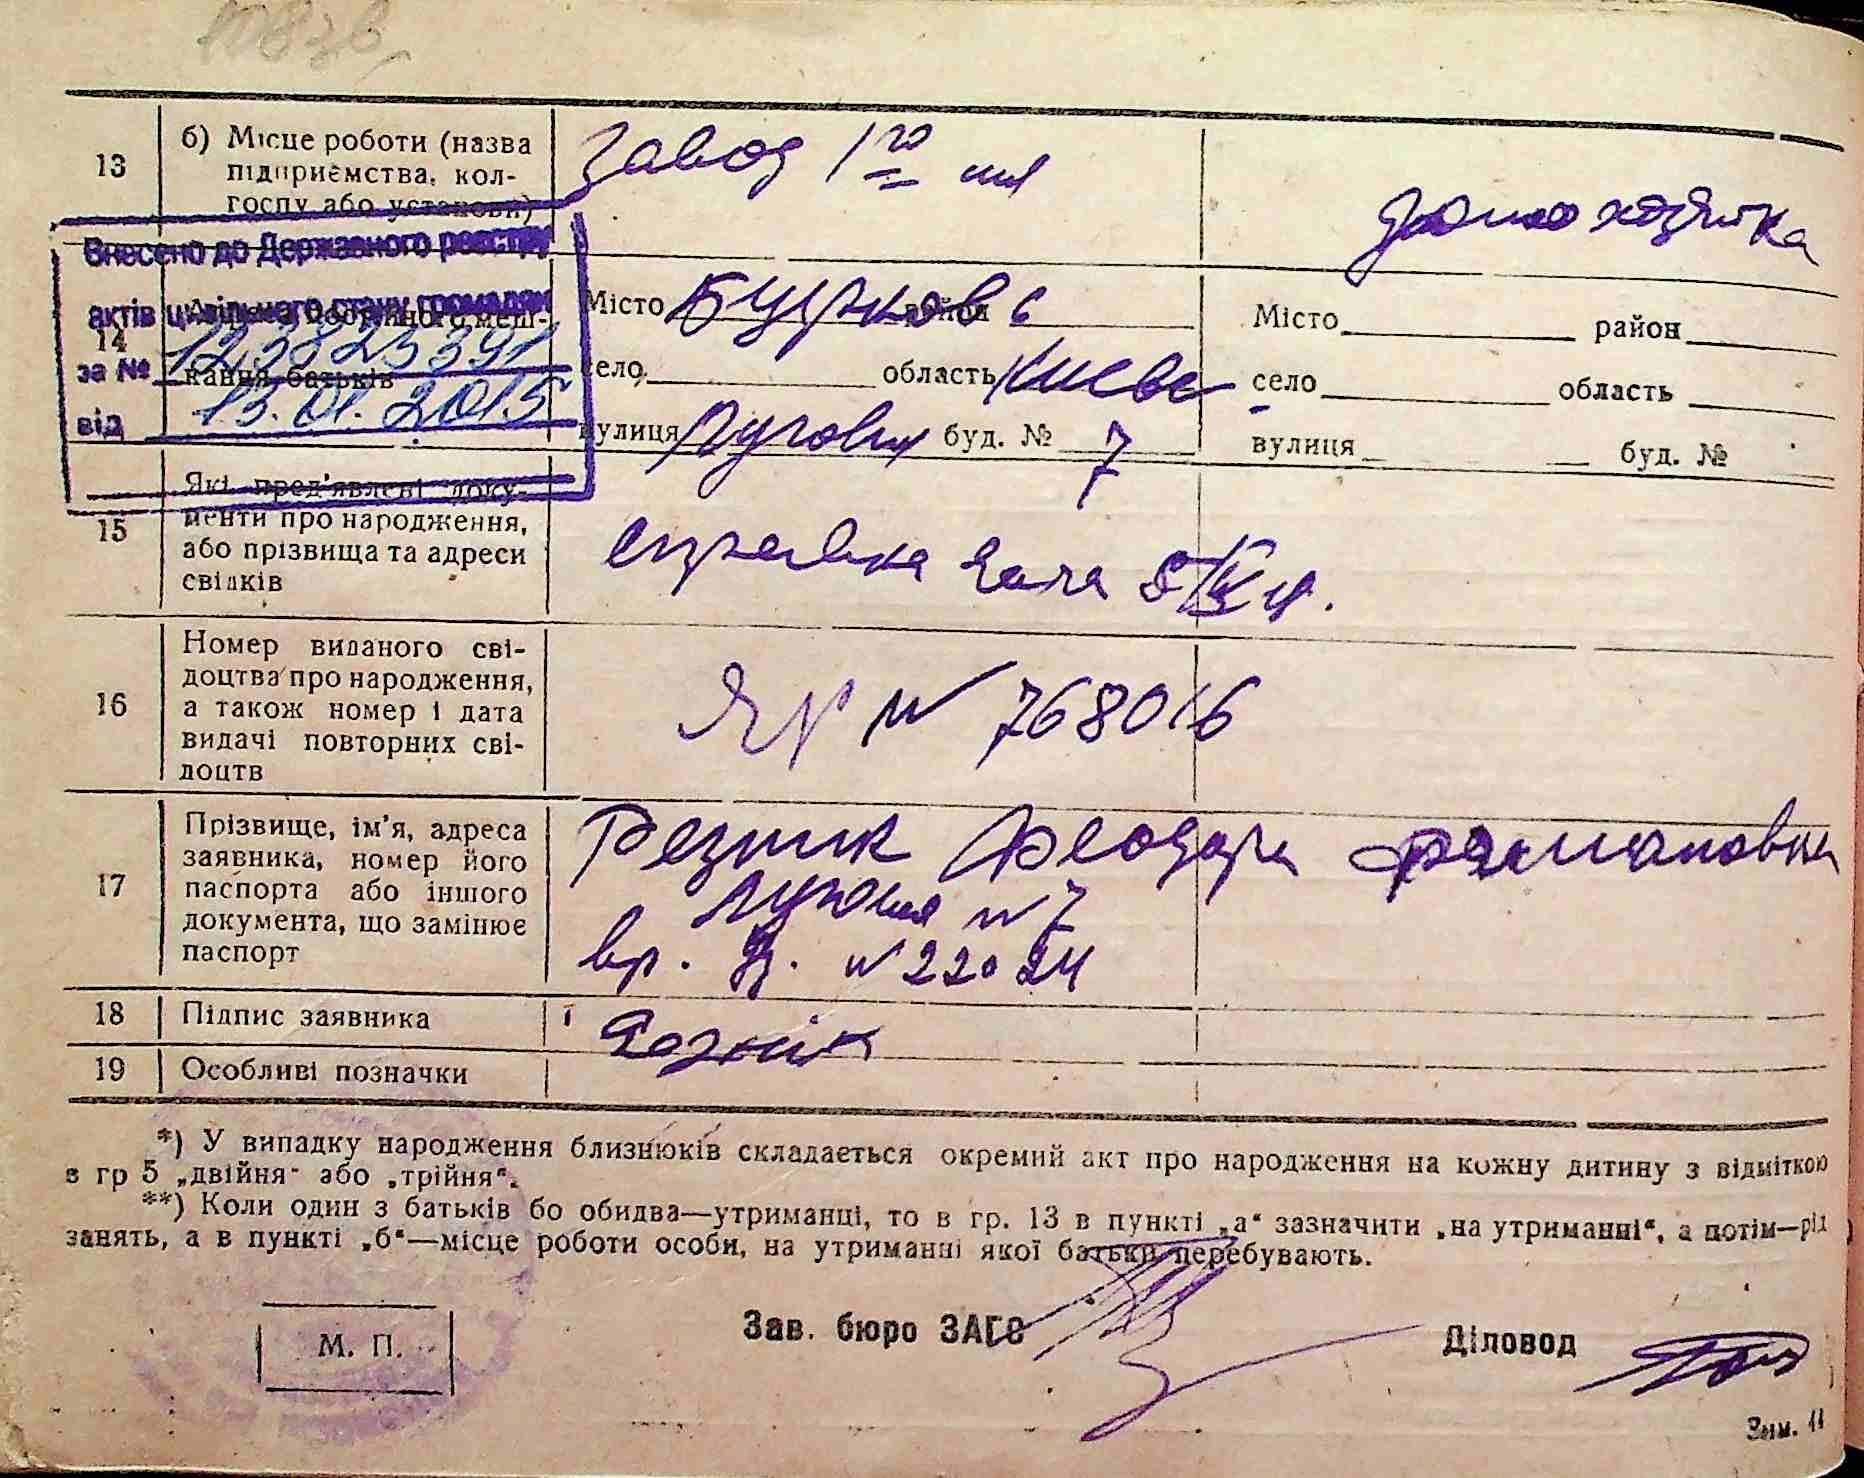 13
б) Місце роботи (назва
підприємства, кол-
госпу або установи)
завод 1го мая
домохозяйка
Внесено до Державного реєстру
актів цивільного стану громадян
за № 12382539
від 13.01.2015
14
кання батьків
Місто район
село область Києвс
вулиця Луговая буд. № 7
Місто район
село область
вулиця буд. №
15
Які пред'явлені доку-
менти про народження,
або прізвища та адреси
свідків
справка
16
Номер виданого сві-
доцтва про народження,
а також номер і дата
видачі повторних сві-
доцтв
ЯР № 768016
17
Прізвище, ім'я, адреса
заявника, номер його
паспорта або іншого
документа, що замінює
паспорт
Резник Феодора
Луговая № 7
вр. № 22024
18
Підпис заявника
19
Особливі позначки
*) У випадку народження близнюків складається окремий акт про народження на кожну дитину з відміткою
в гр 5 „двійня“ або „трійня“.
**) Коли один з батьків бо обидва—утриманці, то в гр. 13 в пункті „а“ зазначити „на утриманні“, а потім—рід
занять, а в пункті „б“—місце роботи особи, на утриманні якої батьки перебувають.
М. П.
Зав. бюро ЗАГС
Діловод
Зим. 11